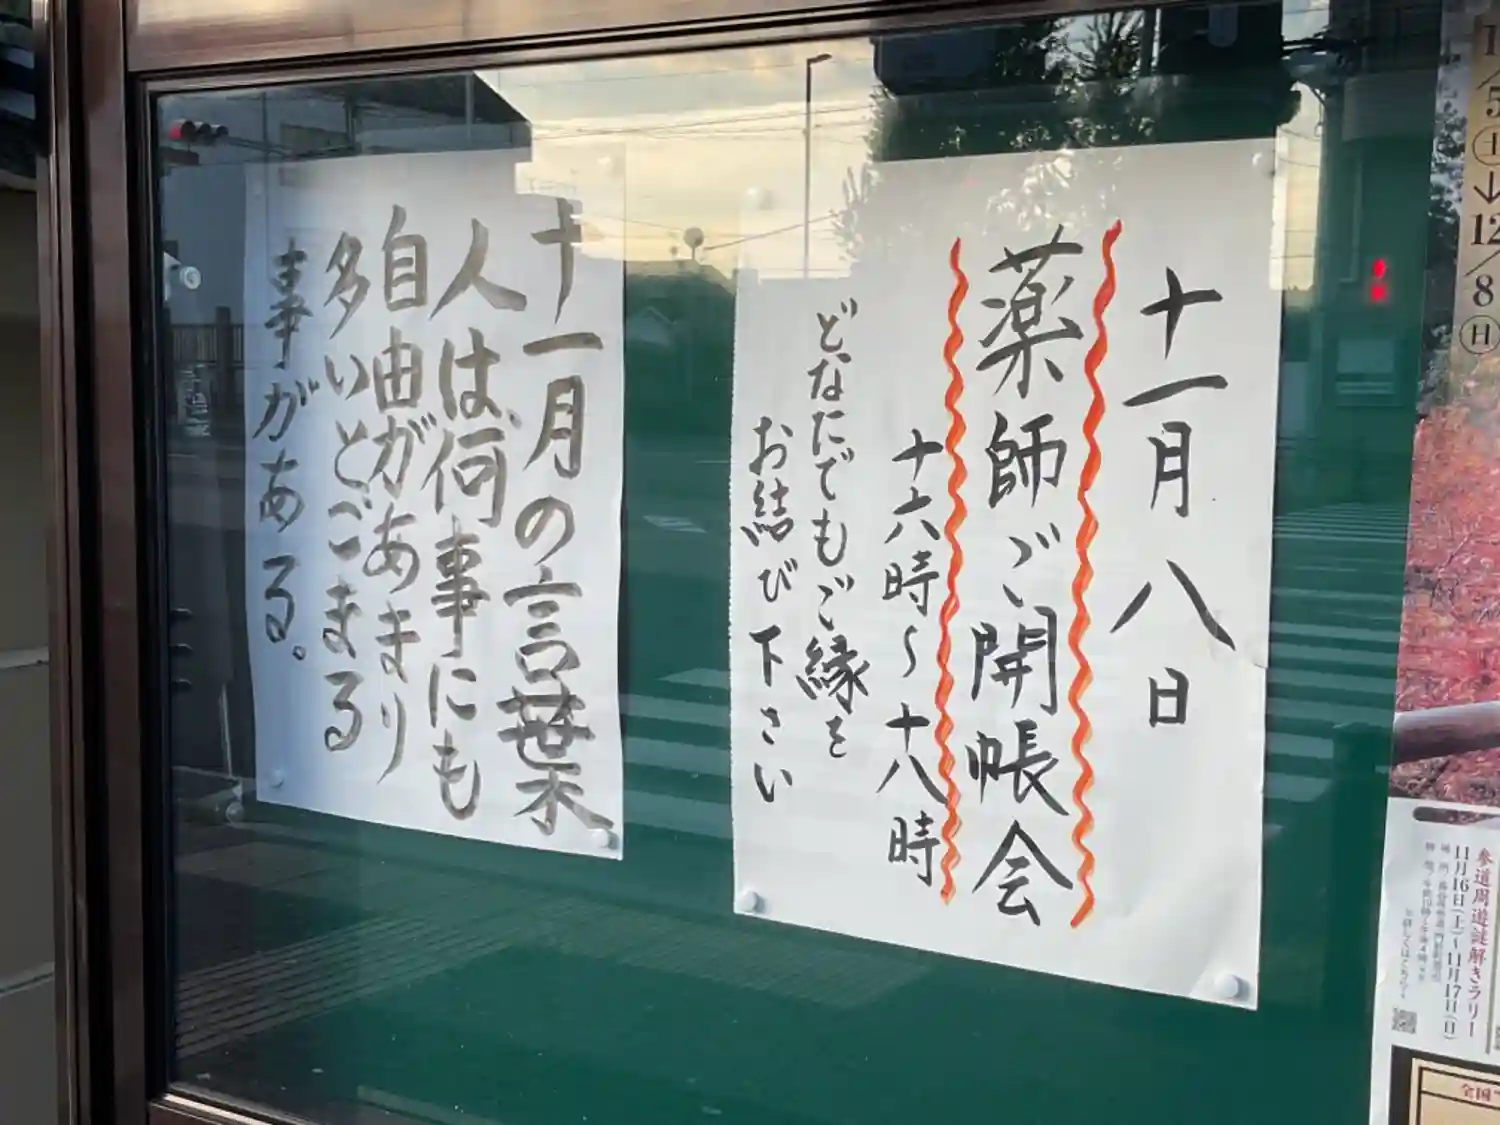 十一月八日
薬師ご開帳会
十六時〜十八時
どなたでもご縁を
お結び下さい
十一月の言葉
人は何事にも
自由があまり
多いとごまる
事がある。
5
土
↓
12/8
日
参道周遊謎解きラリー
11月16日(土)〜11月17日(日)
全国